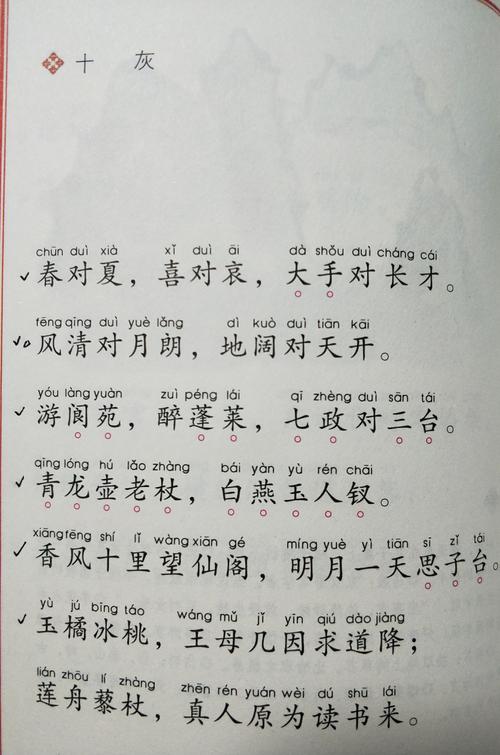 十 灰
chūn duì xià xǐ duì āi dà shǒu duì cháng cái
春对夏，喜对哀，大手对长才。
fēng qīng duì yuè lǎng dì kuò duì tiān kāi
风清对月朗，地阔对天开。
yóu làng yuàn zuì péng lái qī zhèng duì sān tái
游阆苑，醉蓬莱，七政对三台。
qīng lóng hú lǎo zhàng bái yàn yù rén chāi
青龙壶老杖，白燕玉人钗。
xiāng fēng shí lǐ wàng xiān gé míng yuè yì tiān sī zǐ tái
香风十里望仙阁，明月一天思子台。
yù jú bīng táo wáng mǔ jǐ yīn qiú dào jiàng
玉橘冰桃，王母几因求道降；
lián zhōu lí zhàng zhēn rén yuán wèi dú shū lái
莲舟藜杖，真人原为读书来。